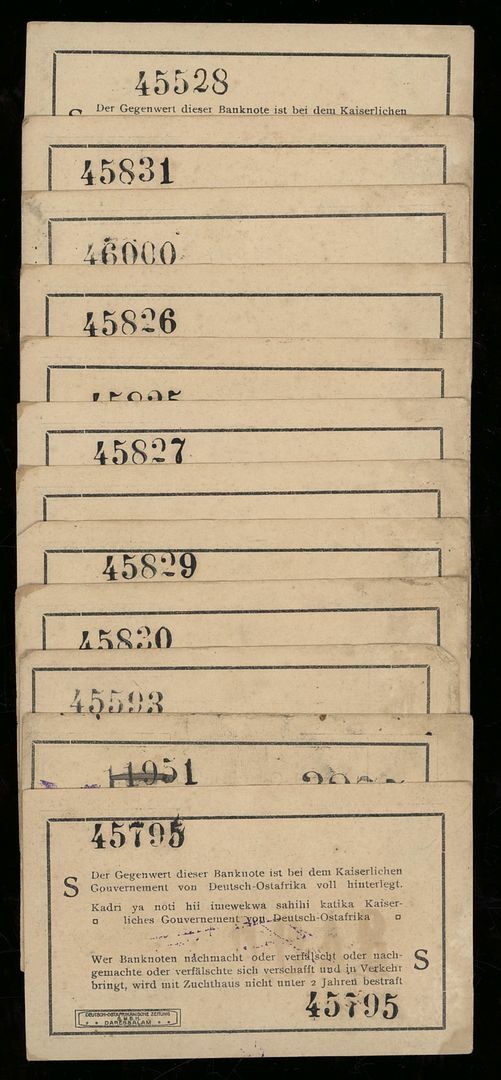 45528
S Der Gegenwert dieser Banknote ist bei dem Kaiserlichen
45831
46000
45826
45825
45827
45829
45830
45593
11951
45795
Der Gegenwert dieser Banknote ist bei dem Kaiserlichen
S Gouvernement von Deutsch-Ostafrika voll hinterlegt.
Kadri ya noti hii imewekwa sahihi katika Kaiser-
liches Gouvernement von Deutsch-Ostafrika
Wer Banknoten nachmacht oder verfälscht oder nach-
gemachte oder verfälschte sich verschafft und in Verkehr S
bringt, wird mit Zuchthaus nicht unter 2 Jahren bestraft
45795
DEUTSCH-OSTAFRIKANISCHE ZEITUNG
G.M.B.H.
DARESSALAM